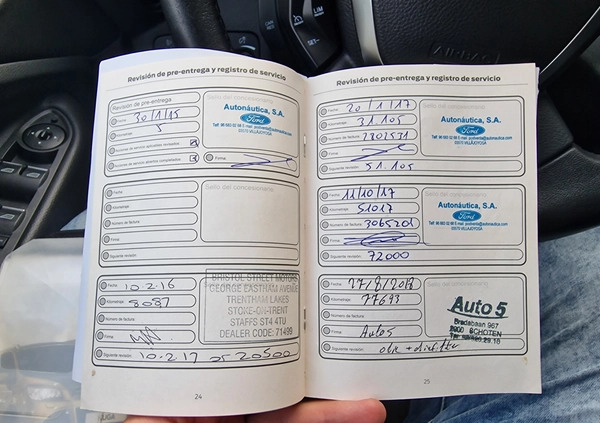 Revisión de pre-entrega y registro de servicio
Revisión de pre-entrega
Fecha: 30/1/15
Kilometraje: 5
Acciones de servicio activadas revisadas:
Acciones de servicio abiertas completadas:
Firma:
Sello del concesionario
Autonáutica, S.A.
Ford
03570 VILLAJOYOSA
Fecha:
Kilometraje:
Número de factura:
Firma:
Siguiente revisión:
Sello del concesionario
Fecha: 10.2.16
Kilometraje: 8087
Número de factura:
Firma:
Siguiente revisión: 10.2.17 20500
BRISTOL STREET MOTORS
GEORGE EASTHAM AVENUE
TRENTHAM LAKES
STOKE-ON-TRENT
STAFFS ST4 4TU
DEALER CODE: 71499
24
Revisión de pre-entrega y registro de servicio
Fecha: 20/1/17
Kilometraje: 31.105
Número de factura: 2802531
Firma:
Siguiente revisión: 51.105
Autonáutica, S.A.
Ford
03570 VILLAJOYOSA
Fecha: 11/10/17
Kilometraje: 51017
Número de factura: 3065201
Firma:
Siguiente revisión: 72000
Autonáutica, S.A.
Ford
03570 VILLAJOYOSA
Fecha: 27/8/2018
Kilometraje: 77693
Número de factura:
Firma: Auto5
Siguiente revisión: olie +
Auto 5
Bredabaan 967
2900 SCHOTEN
25
AIRBAG
LIM
SET-
CAN
RES